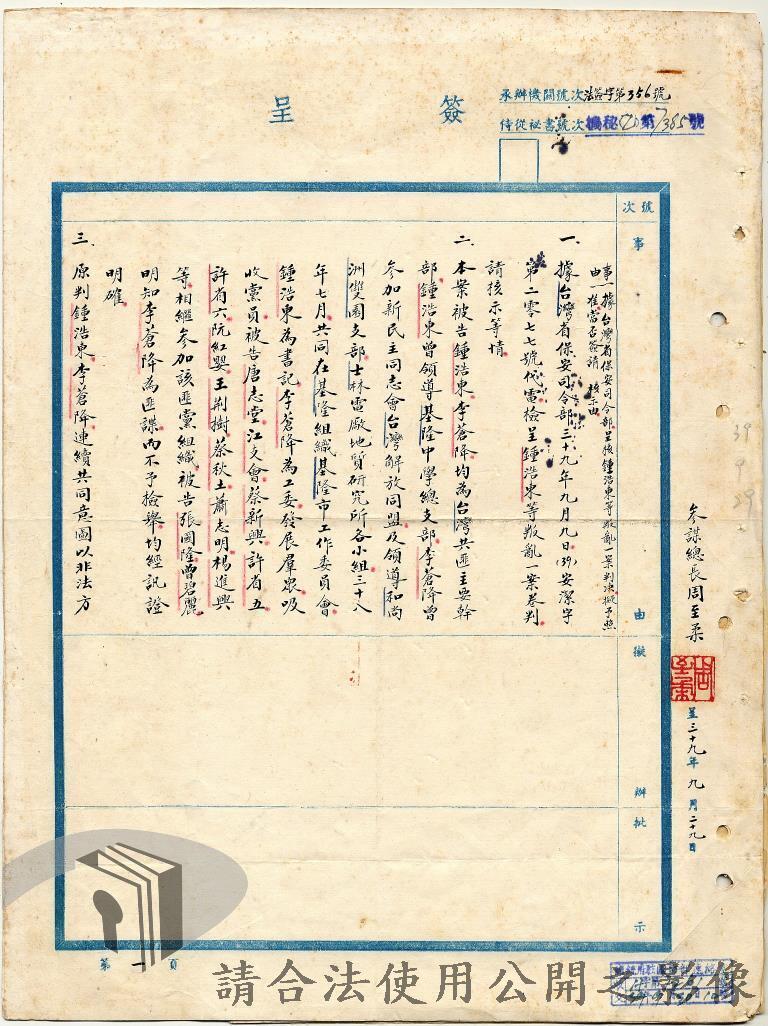 簽呈
承辦機關號次法簽字第356號
侍從祕書號次機秘(乙)第7385號
號次
事由
擬辦
批示
事由：據台灣省保安司令部呈核鍾浩東等叛亂一案判決擬予照准當否簽請核示由
參謀總長周至柔
呈三十九年九月二十九日
39
9
29
一、據台灣省保安司令部三十九年九月九日(39)安潔字
第二零七七號代電檢呈鍾浩東等叛亂一案卷判
請核示等情
二、本案被告鍾浩東李蒼降均為台灣共匪主要幹
部鍾浩東曾領導基隆中學總支部李蒼降曾
參加新民主同志會台灣解放同盟及領導和尚
洲雙園支部士林電廠地質研究所各小組三十八
年七月共同在基隆組織基隆市工作委員會
鍾浩東為書記李蒼降為工委發展羣眾吸
收黨員被告唐志堂江支會蔡新興許省五
許省六阮紅嬰王荆樹蔡秋土蕭志明楊進興
等相繼參加該匪黨組織被告張國隆曾碧麗
明知李蒼降為匪諜而不予檢舉均經訊證
明確
三、原判鍾浩東李蒼降連續共同意圖以非法方
第一頁
請合法使用公開之影像